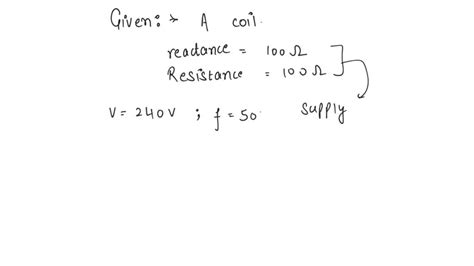 Given:→ A coil.
readance = 100Ω
Resistance = 100Ω
V = 240V ; f = 50 supply